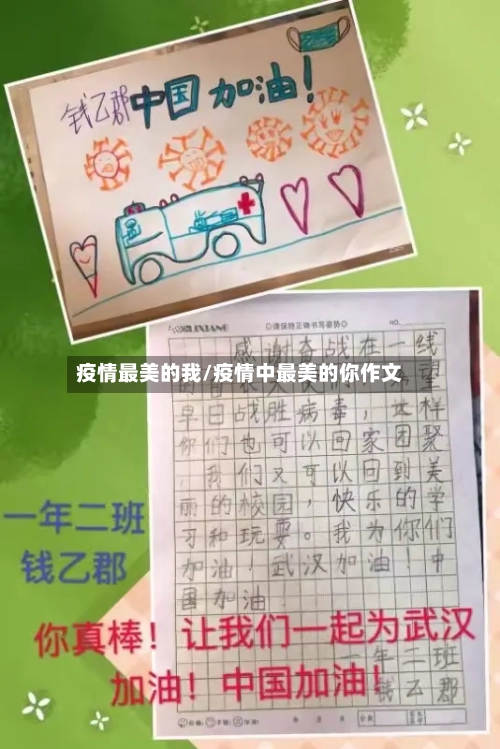 钱乙郡中国加油！
LIXIANG
◎请保持正确书写姿势◎
NO.
感谢奋战在一线
疫情最美的我/疫情中最美的你作文
望
早日战胜病毒，这样
你们也可以回家团聚
，我们又可以回到美
丽的校园，快乐的学
习和玩耍。我为你们
加油！武汉加油！中
国加油！
一年二班
钱乙郡
一年二班
钱乙郡
你真棒！让我们一起为武汉
加油！中国加油！